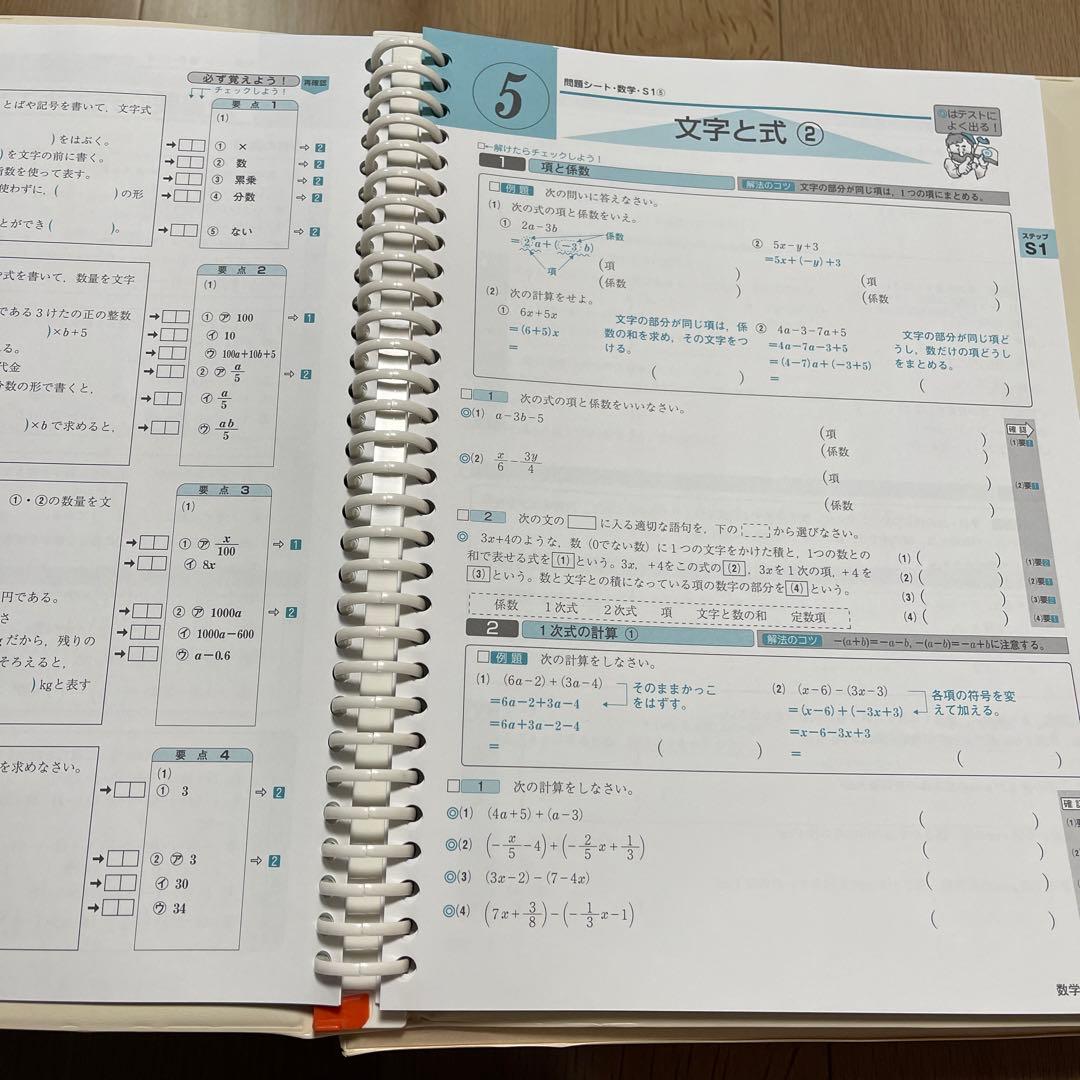 必ず覚えよう!
再確認
チェックしよう!
とばや記号を書いて,文字式
)をはぶく。
)を文字の前に書く。
指数を使って表す。
使わずに,( )の形
とができ( )。
要点1
(1)
① × ⇨ 2
② 数 ⇨ 2
③ 累乗 ⇨ 2
④ 分数 ⇨ 2
⑤ ない ⇨ 2
や式を書いて,数量を文字
である3けたの正の整数
)×b+5
れる。
代金
分数の形で書くと,
)×bで求めると,
要点2
(1)
① ㋐ 100 ⇨ 1
㋑ 10
㋒ 100a+10b+5
② ㋐ a/5 ⇨ 2
㋑ a/5
㋒ ab/5
①・②の数量を文
円である。
さ
gだから,残りの
そろえると,
)kgと表す
要点3
(1)
① ㋐ x/100 ⇨ 1
㋑ 8x
② ㋐ 1000a ⇨ 2
㋑ 1000a-600
㋒ a-0.6
を求めなさい。
要点4
(1)
① 3 ⇨ 2
② ㋐ 3 ⇨ 2
㋑ 30
㋒ 34
5
問題シート・数学・S1⑤
文字と式 ②
◎はテストに
よく出る!
□←解けたらチェックしよう!
1 項と係数
解法のコツ 文字の部分が同じ項は,1つの項にまとめる。
ステップ
S1
例題 次の問いに答えなさい。
(1) 次の式の項と係数をいえ。
① 2a-3b
=2a+(-3b)
係数
項
(項 )
(係数 )
② 5x-y+3
=5x+(-y)+3
(項 )
(係数 )
(2) 次の計算をせよ。
① 6x+5x
=(6+5)x
=
文字の部分が同じ項は,係
数の和を求め,その文字をつ
ける。
( )
② 4a-3-7a+5
=4a-7a-3+5
=(4-7)a+(-3+5)
=
文字の部分が同じ項ど
うし,数だけの項どうし
をまとめる。
( )
1 次の式の項と係数をいいなさい。
◎(1) a-3b-5
(項 )
(係数 )
確認
(1)要1
◎(2) x/6-3y/4
(項 )
(係数 )
(2)要1
2 次の文の□に入る適切な語句を,下の□から選びなさい。
◎ 3x+4のような,数(0でない数)に1つの文字をかけた積と,1つの数との
和で表せる式を(1)という。3x,+4をこの式の(2),3xを1次の項,+4を
(3)という。数と文字との積になっている項の数字の部分を(4)という。
(1)( )
(2)( )
(3)( )
(4)( )
(1)要2
(2)要1
(3)要2
(4)要1
係数 1次式 2次式 項 文字と数の和 定数項
2 1次式の計算 ①
解法のコツ -(a+b)=-a-b, -(a-b)=-a+bに注意する。
例題 次の計算をしなさい。
(1) (6a-2)+(3a-4)
=6a-2+3a-4
=6a+3a-2-4
=
そのままかっこ
をはずす。
( )
(2) (x-6)-(3x-3)
=(x-6)+(-3x+3)
=x-6-3x+3
=
各項の符号を変
えて加える。
( )
1 次の計算をしなさい。
◎(1) (4a+5)+(a-3) ( )
◎(2) (-x/5-4)+(-2/5x+1/3) ( )
◎(3) (3x-2)-(7-4x) ( )
◎(4) (7x+3/8)-(-1/3x-1) ( )
確認
(1)
(2)
数学